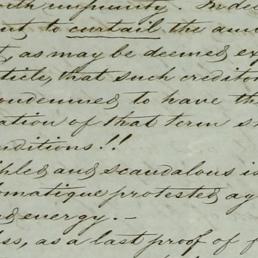 with impunity. Indee
ent to curtail the amo
t, as may be deemed ex
rticle, that such creditor
condemned to have th
ation of that term s
nditions!!!
ible and scandalous is
lomatique protested ag
nd energy. —
ss, as a last proof of f